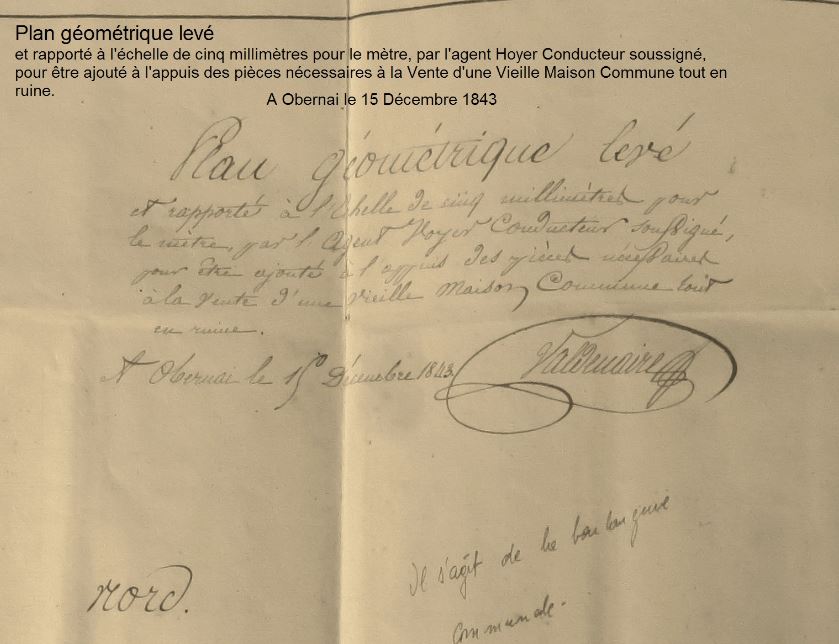 Plan géométrique levé
et rapporté à l'échelle de cinq millimètres pour le mètre, par l'agent Hoyer Conducteur soussigné,
pour être ajouté à l'appuis des pièces nécessaires à la Vente d'une Vieille Maison Commune tout en
ruine.
A Obernai le 15 Décembre 1843
Plan géométrique levé
et rapporté à l'Echelle de cinq millimètres pour
le mètre, par l'Agent Voyer Conducteur soussigné,
pour être ajouté à l'appuis des pièces nécessaires
à la Vente d'une vieille Maison Commune tout
en ruine.
A Obernai le 15 Décembre 1843
Valdenaire
Il s'agit de la boulangerie
communale.
nord.